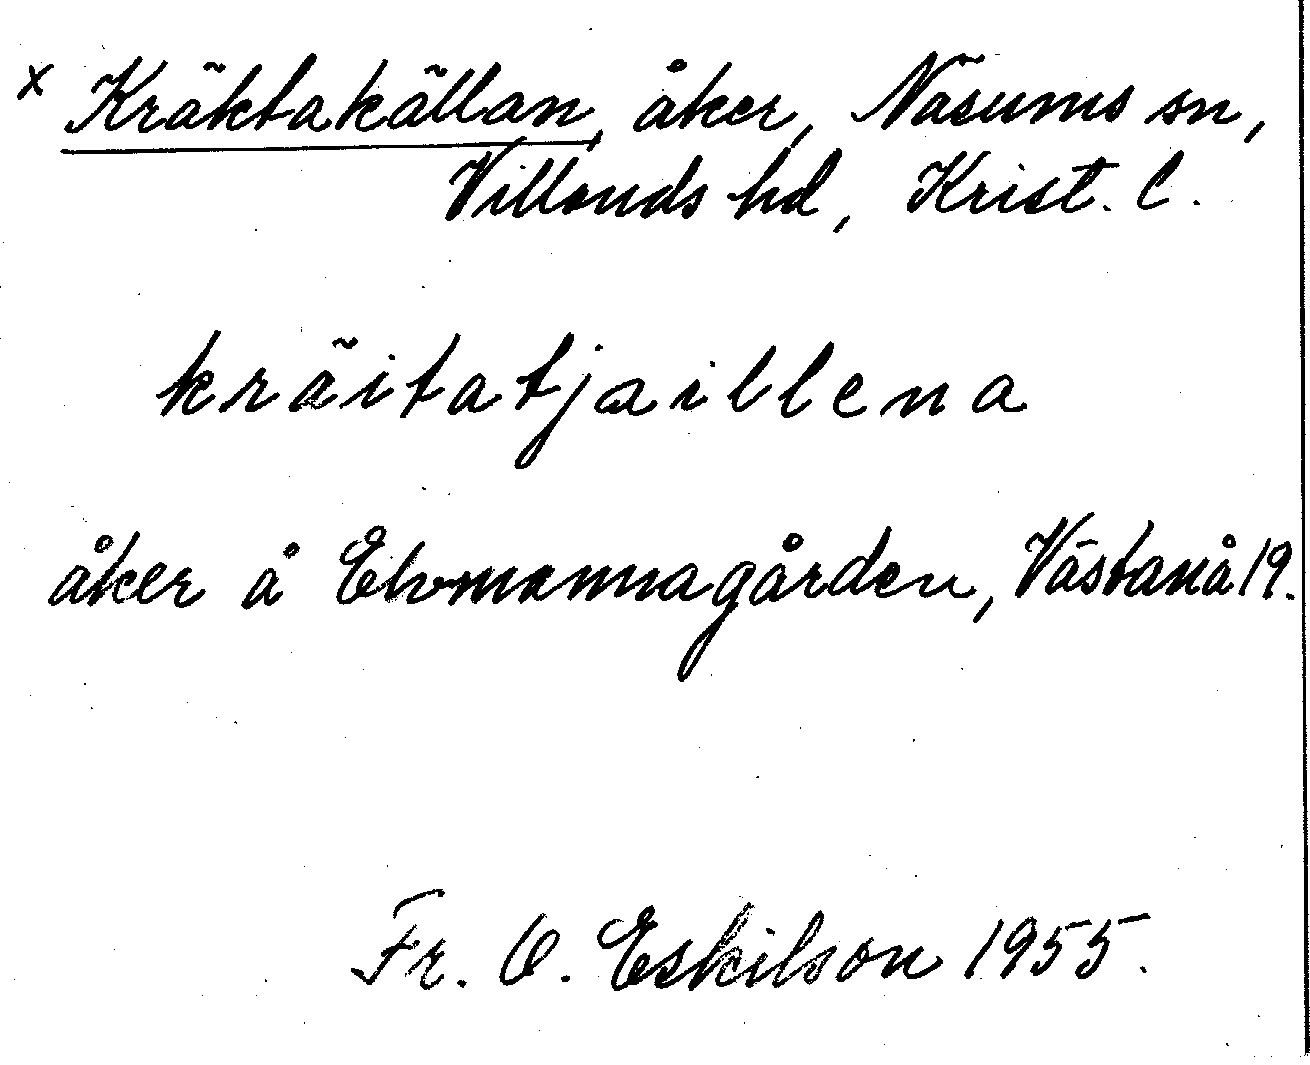 x Kräktakällan, åker, Näsums sn,
Villands hd, Krist. l.
kräitatjaillena
åker å Elvmannagården, Västanå 19.
Fr. O. Eskilson 1955.